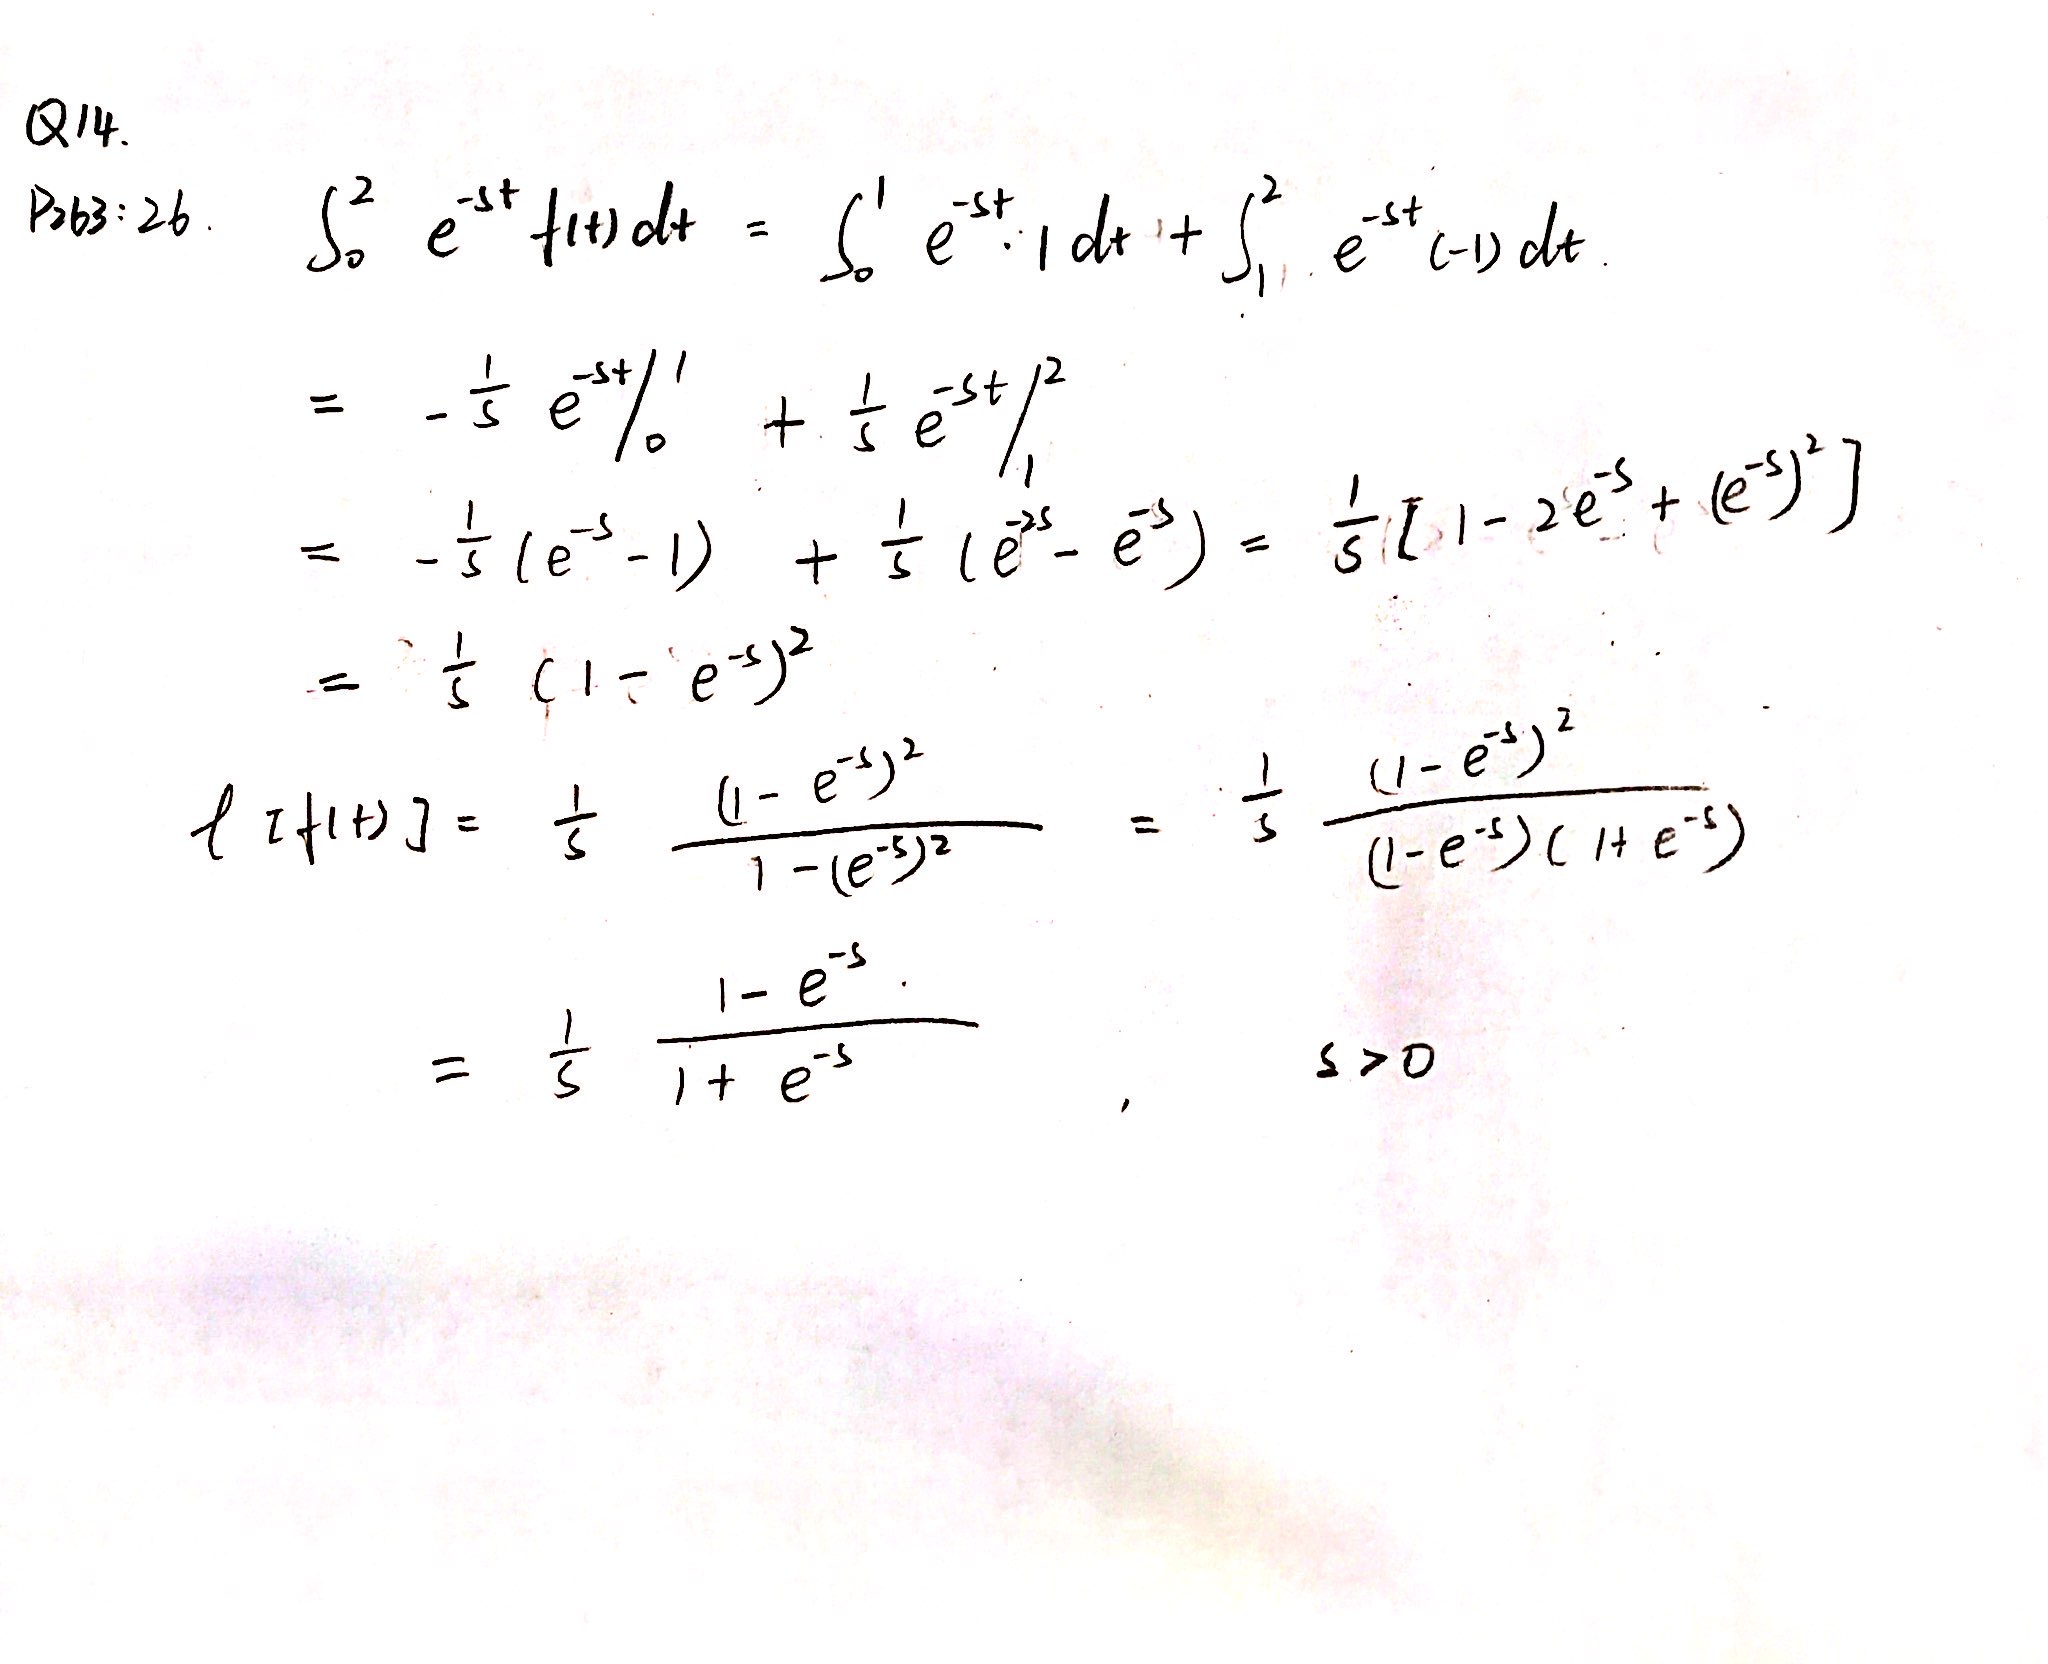 Q14.
P263:26. ∫₀² e^{-st} f(t) dt = ∫₀¹ e^{-st}·1 dt + ∫₁² e^{-st} (-1) dt.
= -1/s e^{-st}/₀¹ + 1/s e^{-st}/₁²
= -1/s (e^{-s} - 1) + 1/s (e^{-2s} - e^{-s}) = 1/s [1 - 2e^{-s} + (e^{-s})²]
= 1/s (1 - e^{-s})²
ℓ[f(t)] = 1/s (1 - e^{-s})² / (1 - (e^{-s})²) = 1/s (1 - e^{-s})² / ((1 - e^{-s})(1 + e^{-s}))
= 1/s (1 - e^{-s}) / (1 + e^{-s}) , s > 0